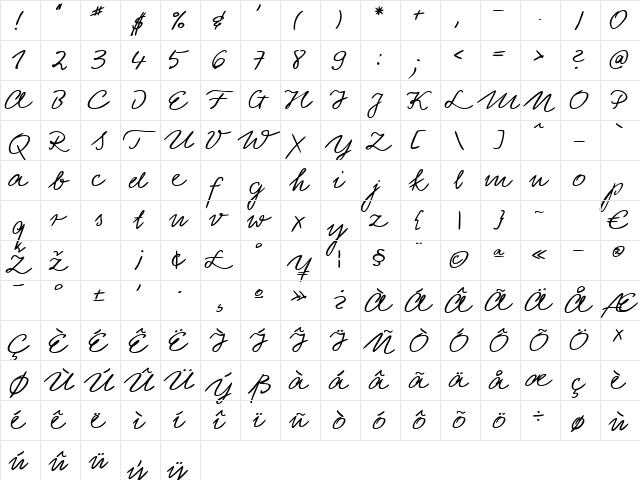 ! " # $ % & ' ( ) * + , - . / 0
1 2 3 4 5 6 7 8 9 : ; < = > ? @
A B C D E F G H I J K L M N O P
Q R S T U V W X Y Z [ \ ] ^ _ `
a b c d e f g h i j k l m n o p
q r s t u v w x y z { | } ~ €
Ž ž ¡ ¢ £ ¥ ¦ § ¨ © ª « ¬ ®
¯ ° ± ´ · ¸ º » ¿ À Á Â Ã Ä Å Æ
Ç È É Ê Ë Ì Í Î Ï Ñ Ò Ó Ô Õ Ö ×
Ø Ù Ú Û Ü Ý ß à á â ã ä å æ ç è
é ê ë ì í î ï ñ ò ó ô õ ö ÷ ø ù
ú û ü ý ÿ